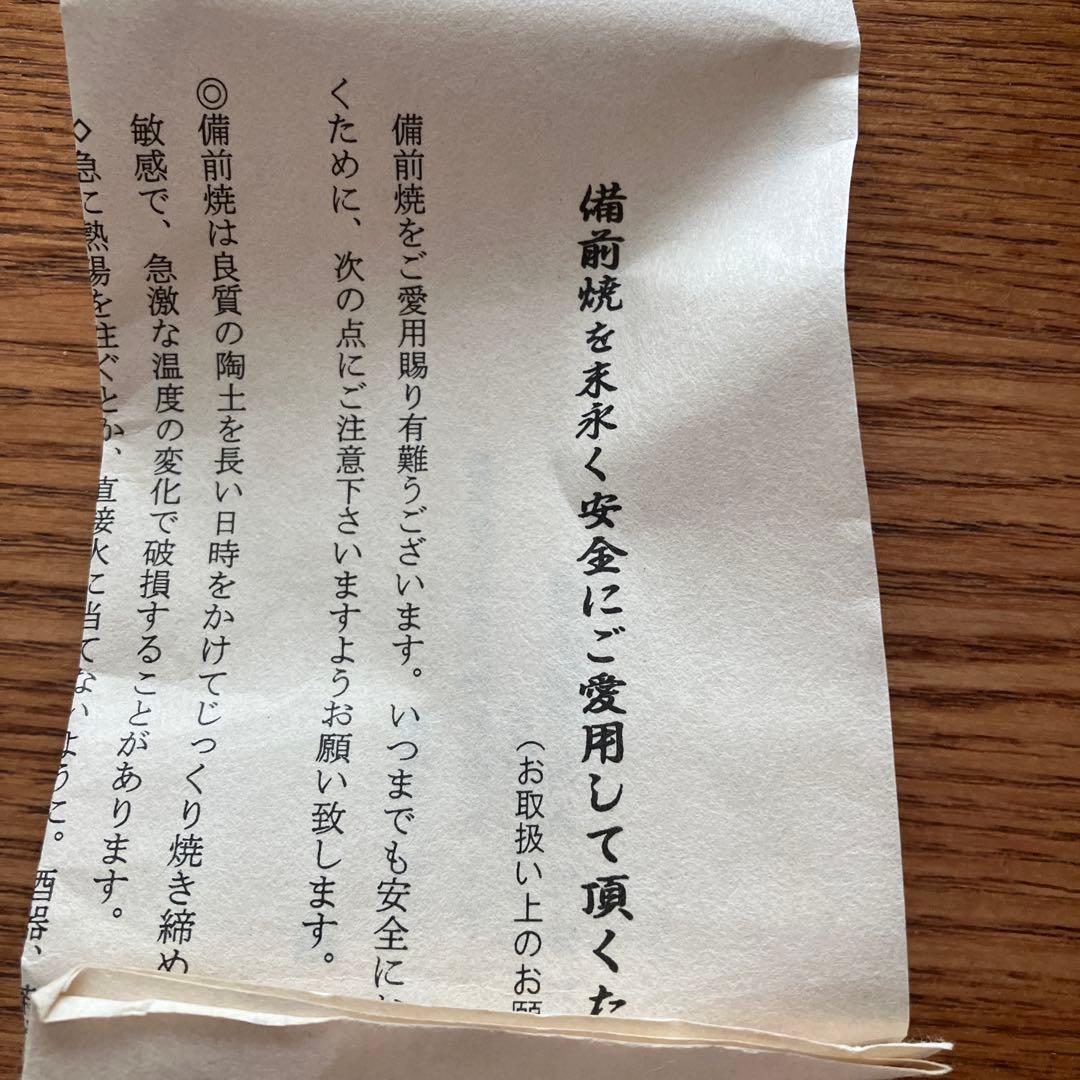 備前焼を末永く安全にご愛用して頂くた
（お取扱い上のお願
備前焼をご愛用賜り有難うございます。いつまでも安全にお
くために、次の点にご注意下さいますようお願い致します。
◎備前焼は良質の陶土を長い日時をかけてじっくり焼き締め
敏感で、急激な温度の変化で破損することがあります。
◇急に熱湯を注ぐとか、直接火に当てないように。酒器、